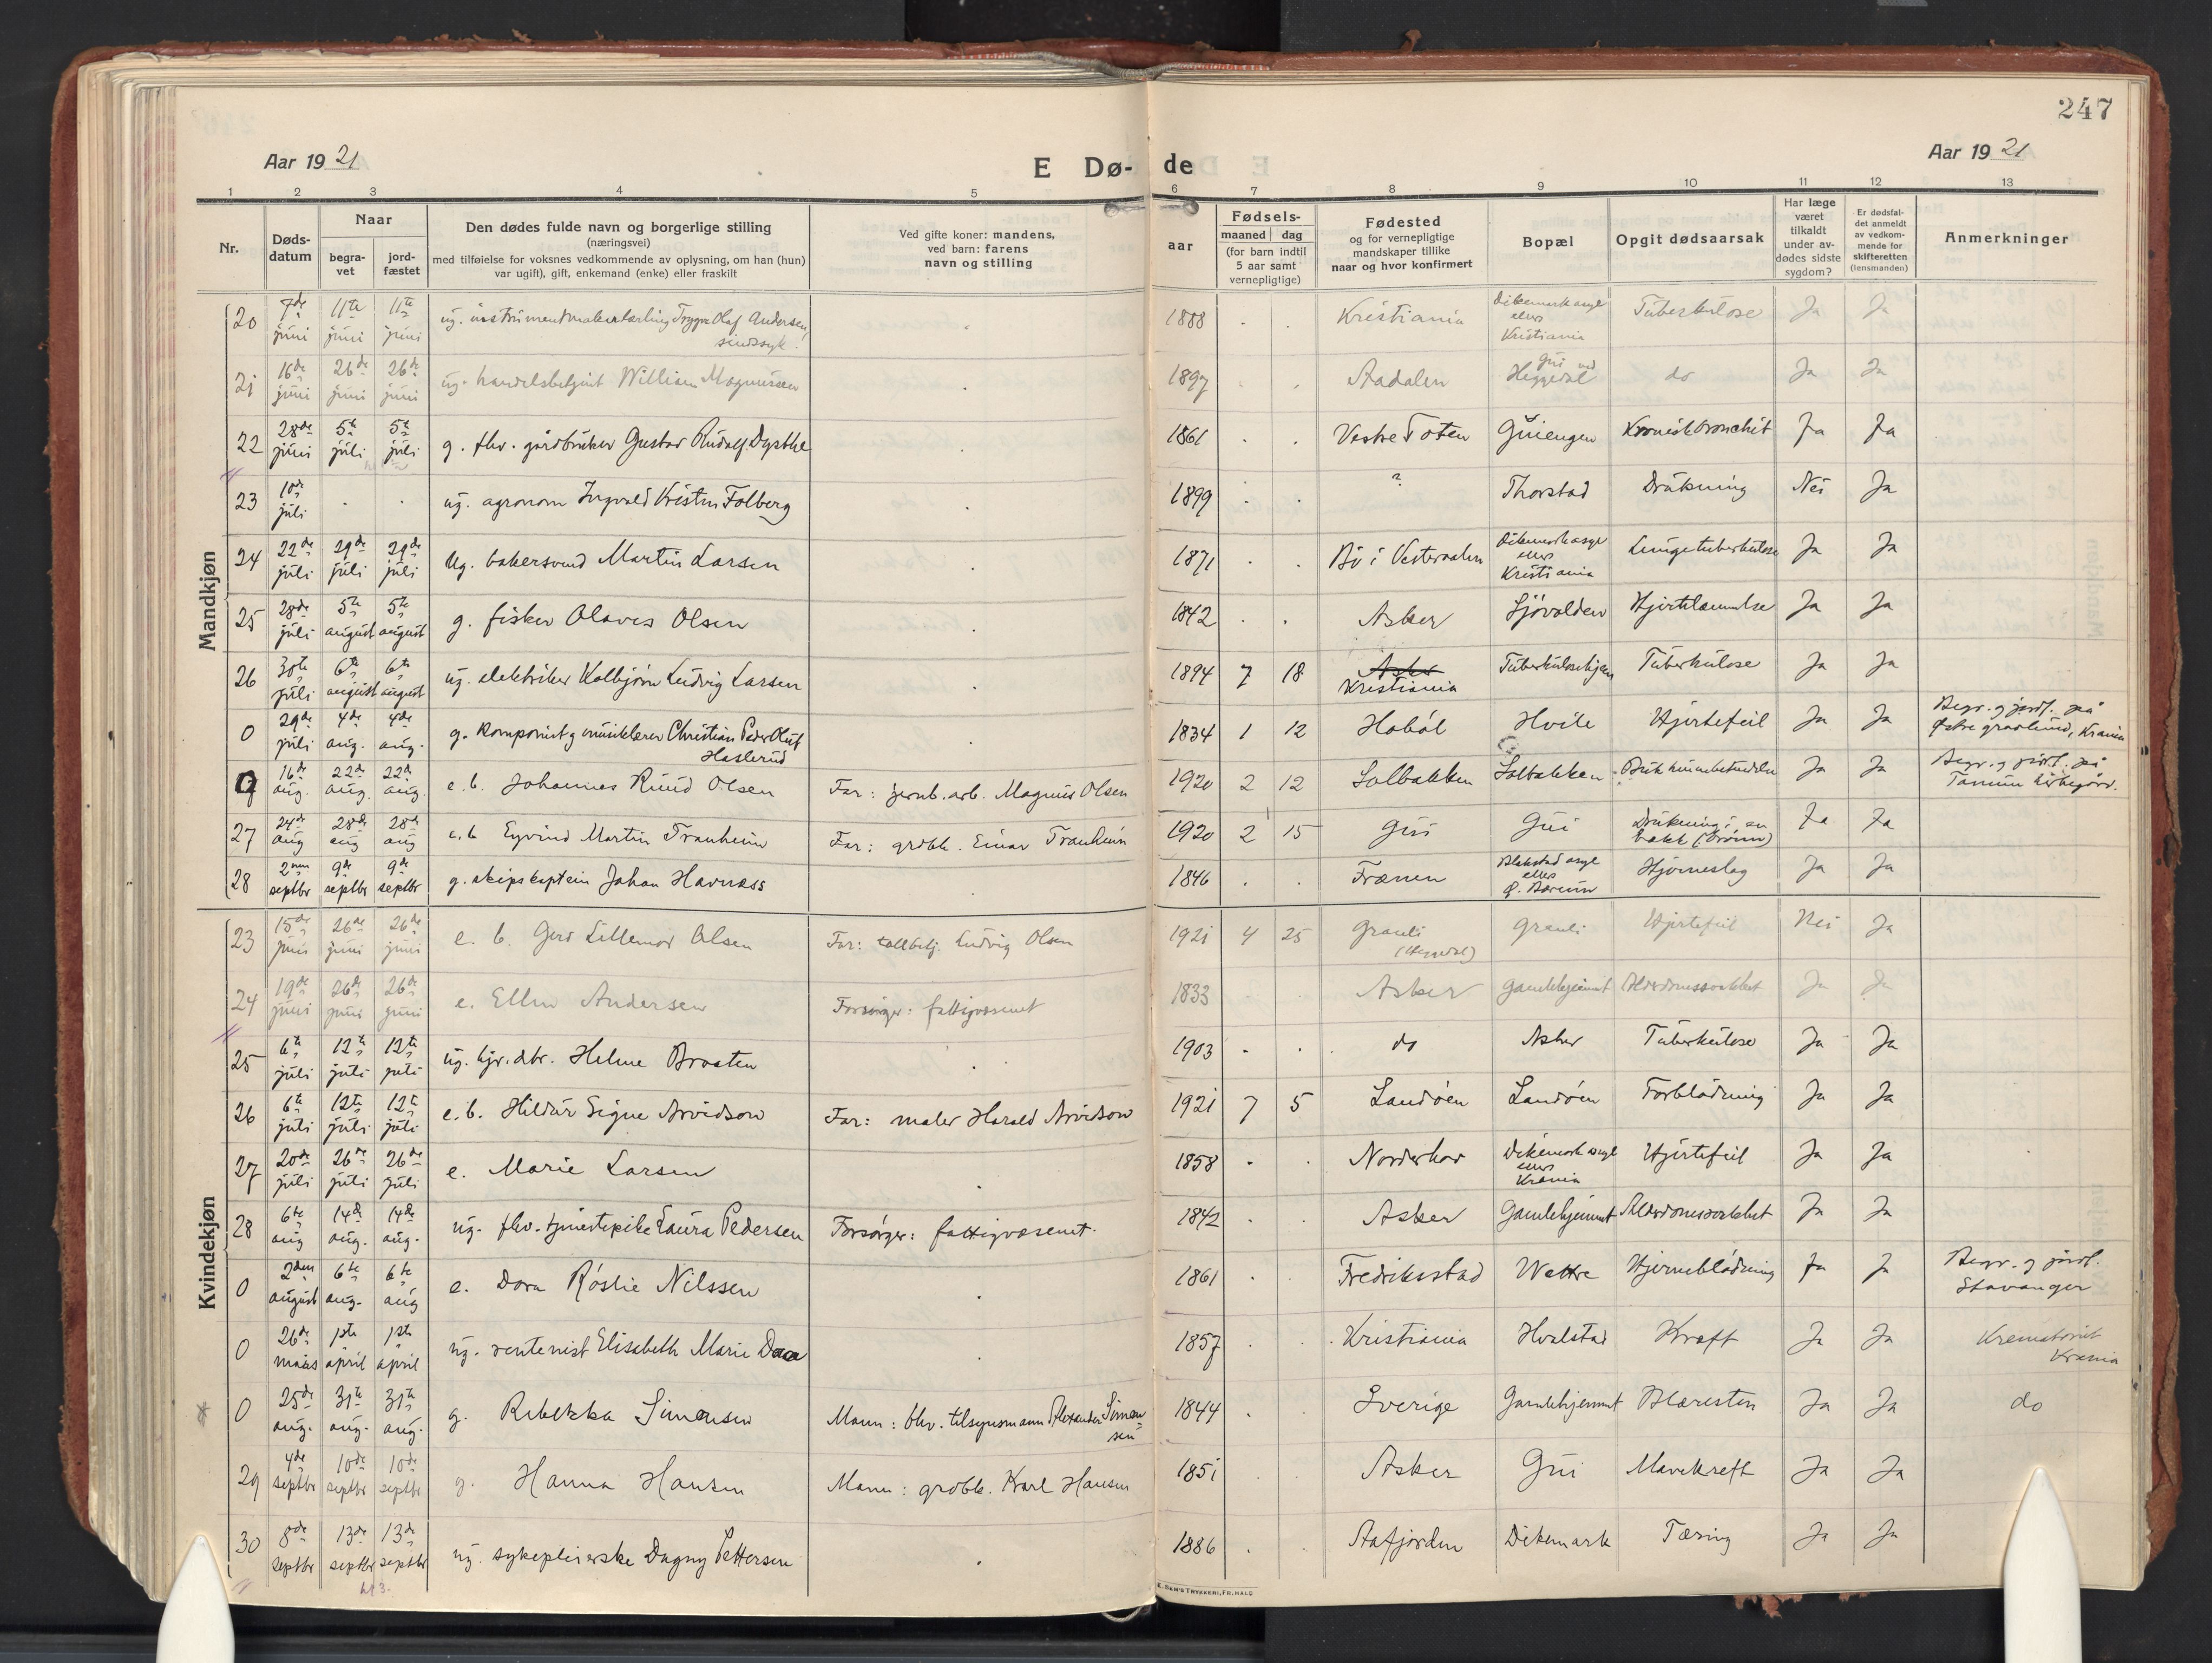 247
Aar 19 21
E Dø- de
Aar 19 21
1 2 3 4 5 6 7 8 9 10 11 12 13
Nr.
Døds-
datum
Naar
begra-
vet
jord-
fæstet
Den dødes fulde navn og borgerlige stilling
(næringsvei)
med tilføielse for voksnes vedkommende av oplysning, om han (hun)
var ugift), gift, enkemand (enke) eller fraskilt
Ved gifte koner: mandens,
ved barn: farens
navn og stilling
aar
Fødsels-
maaned dag
(for barn indtil
5 aar samt
vernepligtige)
Fødested
og for vernepligtige
mandskaper tillike
naar og hvor konfirmert
Bopæl
Opgit dødsaarsak
Har læge
været
tilkaldt
under av-
dødes sidste
sygdom?
Er dødsfal-
det anmeldt
av vedkom-
mende for
skifteretten
(lensmanden)
Anmerkninger
Mandkjøn
20 7de juni 11te juni 11te juni ug. instrumentmakerlærling Trygve Olaf Andersen, sindssyk. 1888 Kristiania Dikemark asyl ellers Kristiania Tuberkulose Ja Ja
21 16de juni 26de juni 26de juni ug. handelsbetjent William Magnussen 1897 Aadalen Gui ved Heggedal do Ja Ja
22 28de juni 5te juli 5te juli g. fhv. gårdbruker Gustav Rudolf Dysthe 1861 Vestre Toten Guiengen Kronisk bronchit Ja Ja
23 10de juli ug. agronom Ingvald Kristen Folberg 1899 ? Thorstad Drukning Nei Ja
24 22de juli 29de juli 29de juli Ug. bakersvend Martin Larsen 1871 Bø i Vesteraalen Dikemark asyl ellers Kristiania Lungetuberkulose Ja Ja
25 28de juli 5te august 5te august g. fisker Olaves Olsen 1842 Asker Sjøvolden Hjertelammelse Ja Ja
26 30te juli 6te august 6te august ug. elektriker Kolbjørn Ludvig Larsen 1894 7 18 Asker Kristiania Tuberkulosehjem Tuberkulose Ja Ja
0 29de juli 4de aug. 4de aug. g. komponist og musiklærer Christian Peder Olut Haslerud 1834 1 12 Hobøl Hvile Hjertefeil Ja Ja Begr. og jordf. på Østre gravlund, Krania
0 16de aug. 22de aug. 22de aug. e. b. Johannes Ruud Olsen Far: jernb. arb. Magnus Olsen 1920 2 12 Solbakken Solbakken Ja Ja Begr. og jordf. på Tanum kirkegård.
27 24de aug 28de aug 28de aug e. b. Eyvind Martin Tranheim Far: grdbr. Einar Tranheim 1920 2 15 Gui Gui Drukning i en bekk (brønn) Ja Ja
28 2nen septbr 9de septbr 9de septbr g. skipskaptein Johan Havnæss 1846 Frænen Blakstad asyl ellers Ø. Bærum Hjerneslag Ja Ja
Kvindekjøn
23 15de juni 26de juni 26de juni e. b. Gerd Lillemor Olsen Far: tollbetj. Ludvig Olsen 1921 4 25 Granli (Heggedal) Granli Hjertefeil Nei Ja
24 19de juni 26de juni 26de juni e. Ellen Andersen Forsørger: fattigvæsenet 1833 Asker Gamlehjemmet Alderdomssvakhet Ja Ja
25 6te juli 12te juli 12te juli ug. gjr. dtr. Helene Braaten 1903 do Asker Tuberkulose Ja Ja
26 6te juli 12te juli 12te juli e. b. Hildur Signe Arvidson Far: maler Harald Arvidson 1921 7 5 Landøen Landøen Forblødning Ja Ja
27 20de juli 26de juli 26de juli e. Marie Larsen 1858 Norderhov Dikemark asyl ellers Krania Hjertefeil Ja Ja
28 6te aug 14de aug. 14de aug. ug. fhv. tjenestepike Laura Pedersen Forsørger: fattigvæsenet. 1842 Asker Gamlehjemmet Alderdomssvakhet Ja Ja
0 2den august 6te aug. 6te aug e. Dora Røslie Nilssen 1861 Fredriksstad Wettre Hjerneblødning Ja Ja Begr. og jordf. Stavanger
0 26de mars 1ste april 1ste april ug. rentenist Elisabeth Marie Daa 1857 Kristiania Hvalstad Kræft Ja Ja Krematoriet Krania
0 25de aug. 31te aug. 31te aug. g. Rebekka Simonsen Mann: fhv. tilsynsmann Alexander Simonsen 1844 Sverige Gamlehjemmet Blæresten Ja Ja do
29 4de septbr 10de septbr 10de septbr g. Hanna Hansen Mann: grdbr. Karl Hansen 1851 Asker Gui Mavekreft Ja Ja
30 8de septbr 13de septbr 13de septbr ug. sykepleierske Dagny Pettersen 1886 Aafjorden Dikemark Tæring Ja Ja
E. SEM'S TRYKKERI, FR.HALD